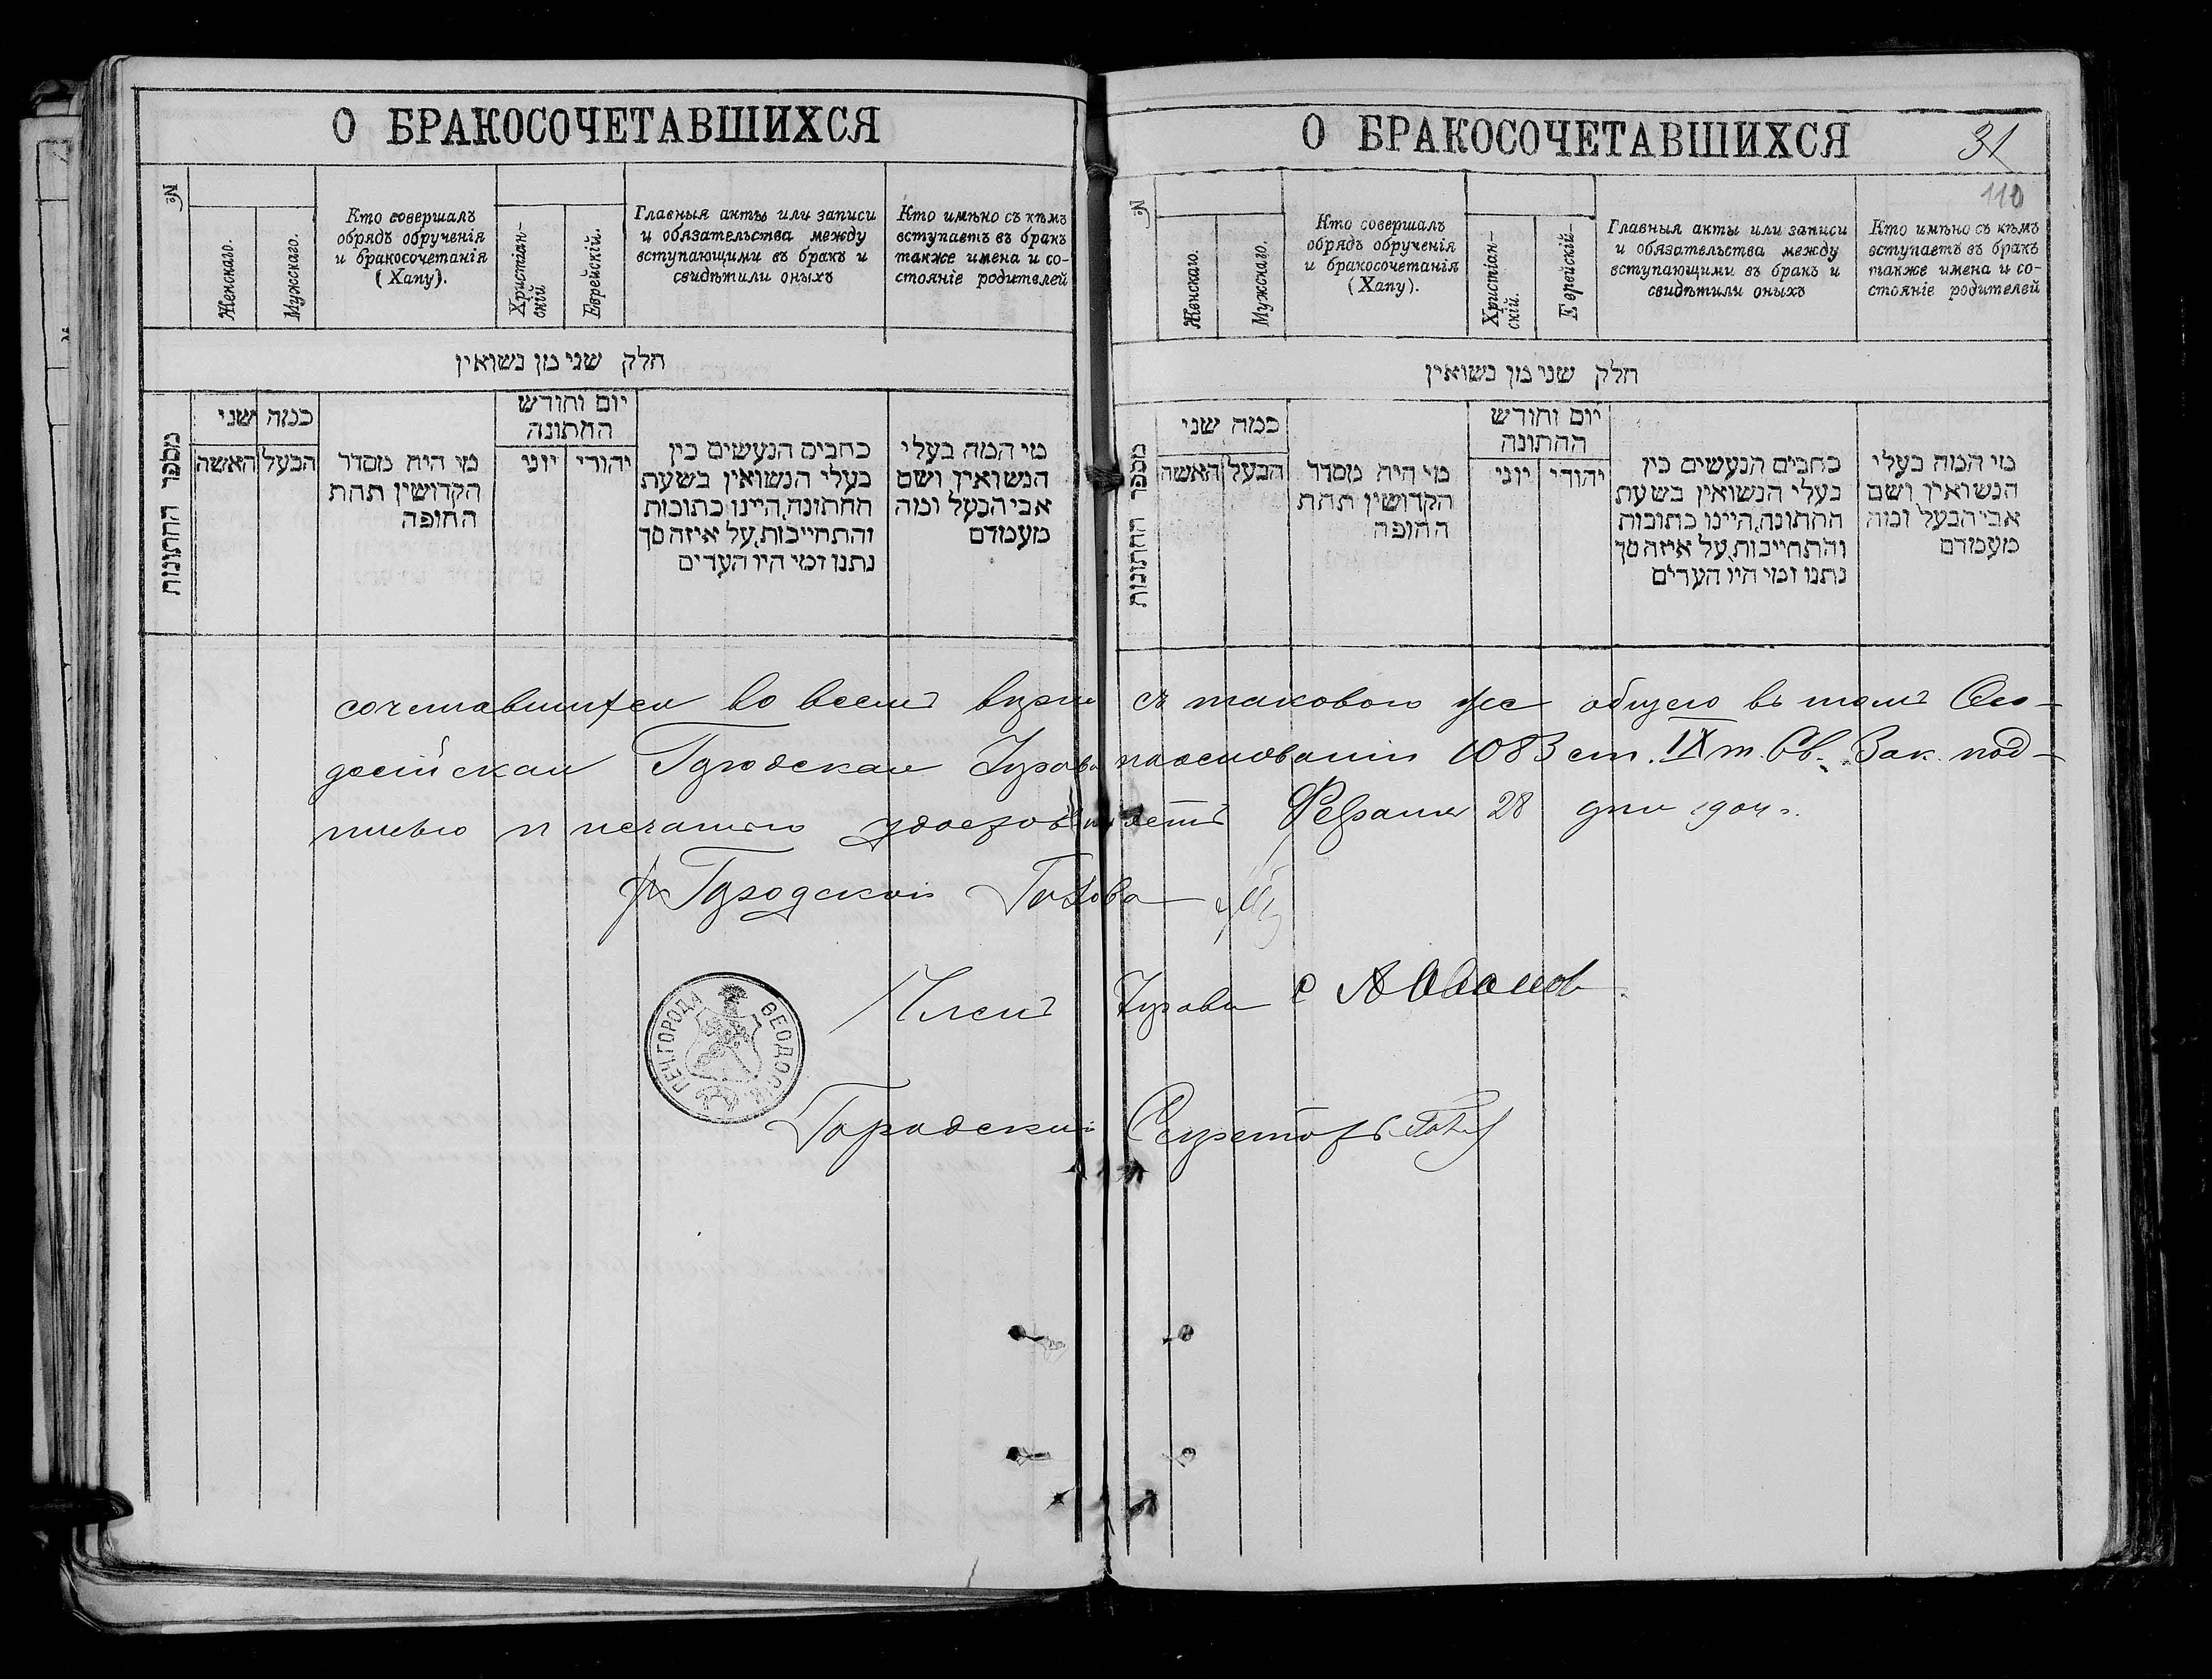 О БРАКОСОЧЕТАВШИХСЯ
№
Женскаго.
Мужскаго.
Кто совершалъ
обрядъ обрученія
и бракосочетанія
(Хапу).
Христіан-
скій
Еврейскій.
Главныя акты или записи
и обязательства между
вступающими въ бракъ и
свидѣтили оныхъ
Кто имѣно съ кѣмъ
вступаетъ въ бракъ
также имена и со-
стояніе родителей
חלק שני מן נשואין
מספר החתונות
כמה שני
האשה
הבעל
מי היה מסדר
הקדושין תחת
החופה
יום וחודש
החתונה
יוני
יהודי
כתבים הנעשים בין
בעלי הנשואין בשעת
החתונה, היינו כתובות
והתחייבות, על איזה סך
נתנו ומי היו העדים
מי המה בעלי
הנשואין ושם
אבי הבעל ומה
מעמדם
О БРАКОСОЧЕТАВШИХСЯ
31
110
№
Женскаго.
Мужскаго.
Кто совершалъ
обрядъ обрученія
и бракосочетанія
(Хапу).
Христіан-
скій.
Еврейскій-
Главныя акты или записи
и обязательства между
вступающими въ бракъ и
свидѣтили оныхъ
Кто имѣно съ кѣмъ
вступаетъ въ бракъ
также имена и со-
стояніе родителей
חלק שני מן נשואין
מספר החתונות
כמה שני
האשה
הבעל
מי היה מסדר
הקדושין תחת
החופה
יום וחודש
החתונה
יוני
יהודי
כתבים הנעשים בין
בעלי הנשואין בשעת
החתונה, היינו כתובות
והתחייבות, על איזה סך
נתנו ומי היו העדים
מי המה בעלי
הנשואין ושם
אבי הבעל ומה
מעמדם
сочетавшихся во всемъ вѣрна съ таковою же общею въ томъ Ѳео-
досійская Городская Управа на основаніи 1083 ст. IX т. Св. Зак. под-
писью и печатью удостовѣряетъ Февраля 28 дня 1904 г.
Городской Голова
Членъ Управы
ПЕЧ. ГОРОДА ѲЕОДОСІИ
Городской Секретарь